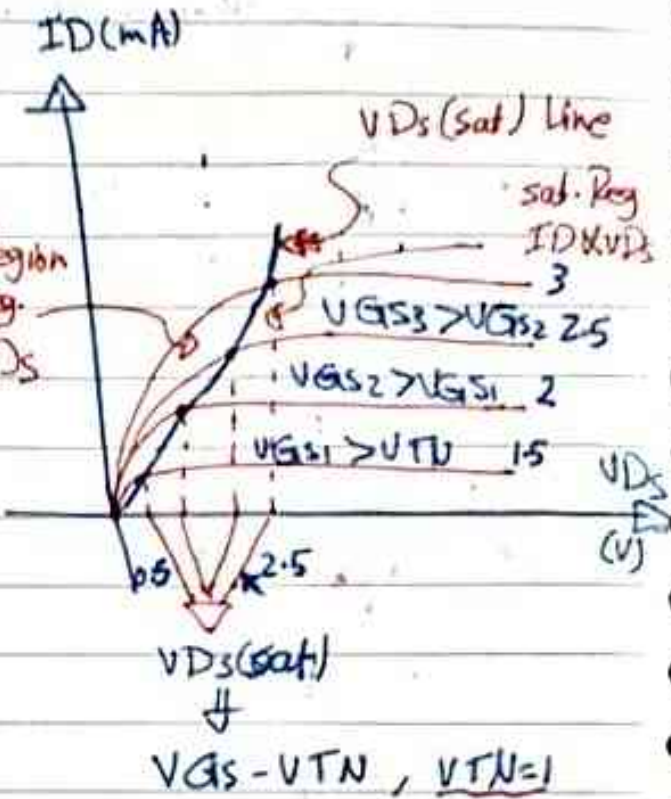 ID(mA)
VDs(sat) Line
sat. Reg
ID VDs
egion
g.
Ds
3
VGS3 >VGS2 2.5
VGS2 >VGS1 2
VGS1 >VTN 1.5
VDs
(V)
0.5
2.5
VDs(sat)
⇓
VGS - VTN , VTN=1